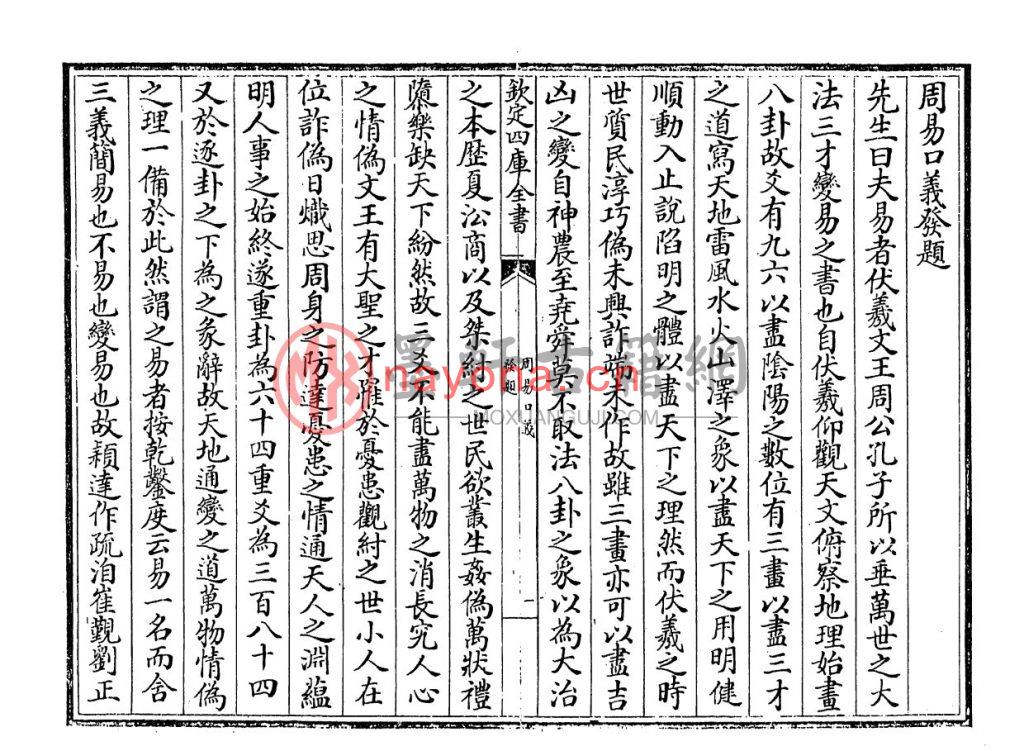 周易口義發題
先生曰夫易者伏羲文王周公孔子所以垂萬世之大
法三才變易之書也自伏羲仰觀天文俯察地理始畫
八卦故爻有九六以盡陰陽之數位有三畫以盡三才
之道寫天地雷風水火山澤之象以盡天下之用明健
順動入止說陷明之體以盡天下之理然而伏羲之時
世質民淳巧偽未興詐端未作故雖三畫亦可以盡吉
凶之變自神農至堯舜莫不取法八卦之象以為大治
欽定四庫全書
周易口義
發題
一
之本歴夏㳂商以及桀紂之世民欲叢生姦偽萬狀禮
隳樂缺天下紛然故三爻不能盡萬物之消長究人心
之情偽文王有大聖之才罹於憂患觀紂之世小人在
位詐偽日熾思周身之防達憂患之情通天人之淵蘊
明人事之始終遂重卦為六十四重爻為三百八十四
又於逐卦之下為之彖辭故天地通變之道萬物情偽
之理一備於此然謂之易者按乾鑿度云易一名而含
三義簡易也不易也變易也故穎達作疏洎崔覲劉正
墨軒古籍網
nayona.cn
MOXUANGUJI.COM